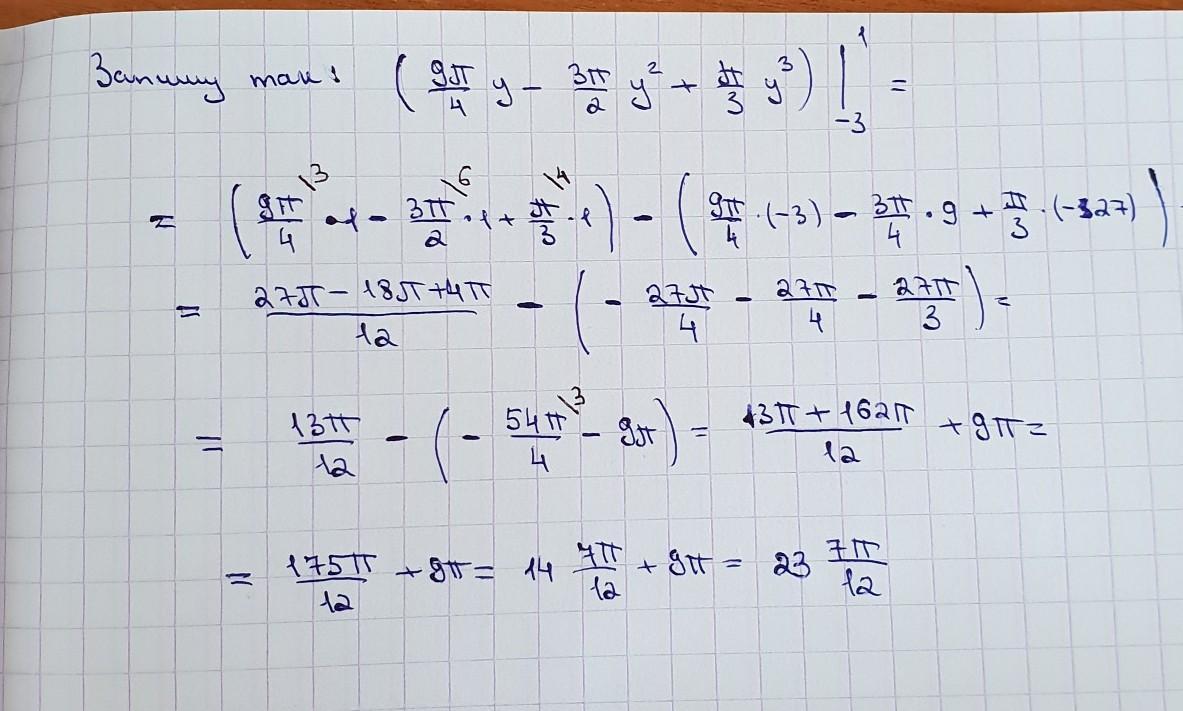 Запишу так: (9π/4 y − 3π/2 y² + π/3 y³) |₋₃¹ =
= (9π/4 \3 · 1 − 3π/2 \6 · 1 + π/3 \4 · 1) − (9π/4 · (−3) − 3π/4 · 9 + π/3 · (−27))
= (27π − 18π + 4π)/12 − (− 27π/4 − 27π/4 − 27π/3) =
= 13π/12 − (− 54π/4 \3 − 9π) = (13π + 162π)/12 + 9π =
= 175π/12 + 9π = 14 7π/12 + 9π = 23 7π/12